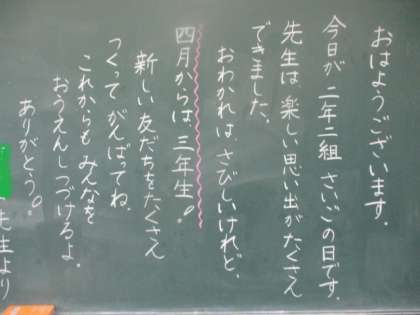 おはようございます。
今日が 二年二組 さいごの日です。
先生は、楽しい思い出が たくさん
できました。
おわかれは、さびしいけれど、
四月からは、三年生!
新しい友だちを たくさん
つくって がんばってね。
これからも みんなを
おうえんしつづけるよ。
ありがとう!
先生より